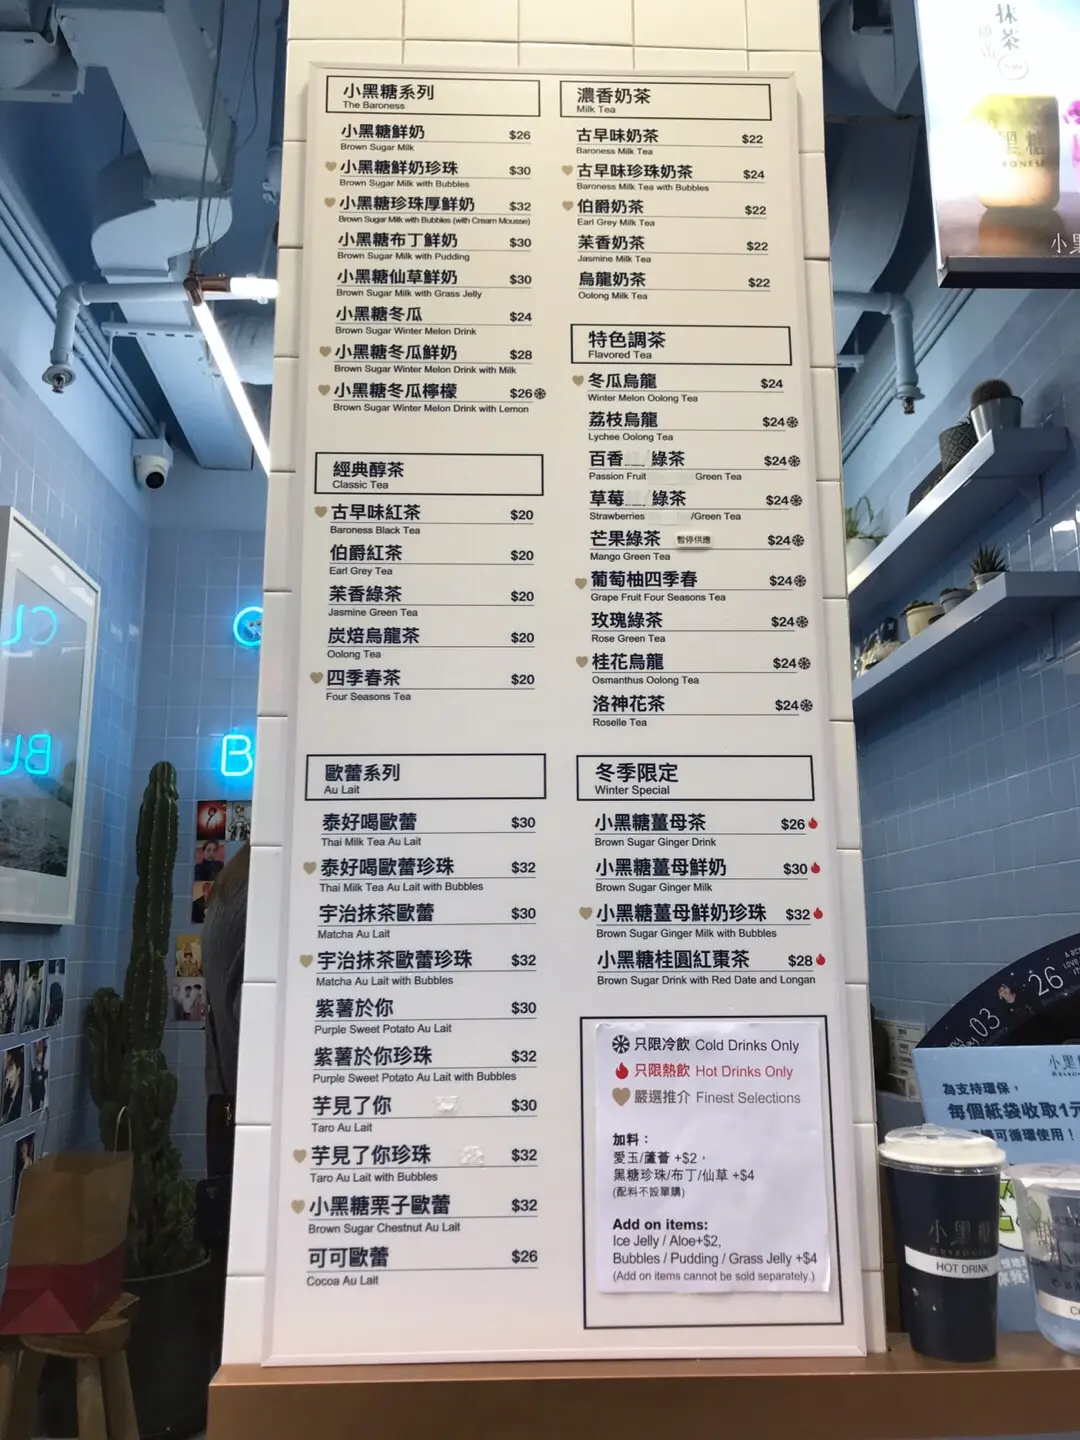 小黑糖系列
The Baroness
小黑糖鮮奶 $26
Brown Sugar Milk
小黑糖鮮奶珍珠 $30
Brown Sugar Milk with Bubbles
小黑糖珍珠厚鮮奶 $32
Brown Sugar Milk with Bubbles (with Cream Mousse)
小黑糖布丁鮮奶 $30
Brown Sugar Milk with Pudding
小黑糖仙草鮮奶 $30
Brown Sugar Milk with Grass Jelly
小黑糖冬瓜 $24
Brown Sugar Winter Melon Drink
小黑糖冬瓜鮮奶 $28
Brown Sugar Winter Melon Drink with Milk
小黑糖冬瓜檸檬 $26
Brown Sugar Winter Melon Drink with Lemon
經典醇茶
Classic Tea
古早味紅茶 $20
Baroness Black Tea
伯爵紅茶 $20
Earl Grey Tea
茉香綠茶 $20
Jasmine Green Tea
炭焙烏龍茶 $20
Oolong Tea
四季春茶 $20
Four Seasons Tea
歐蕾系列
Au Lait
泰好喝歐蕾 $30
Thai Milk Tea Au Lait
泰好喝歐蕾珍珠 $32
Thai Milk Tea Au Lait with Bubbles
宇治抹茶歐蕾 $30
Matcha Au Lait
宇治抹茶歐蕾珍珠 $32
Matcha Au Lait with Bubbles
紫薯於你 $30
Purple Sweet Potato Au Lait
紫薯於你珍珠 $32
Purple Sweet Potato Au Lait with Bubbles
芋見了你 $30
Taro Au Lait
芋見了你珍珠 $32
Taro Au Lait with Bubbles
小黑糖栗子歐蕾 $32
Brown Sugar Chestnut Au Lait
可可歐蕾 $26
Cocoa Au Lait
濃香奶茶
Milk Tea
古早味奶茶 $22
Baroness Milk Tea
古早味珍珠奶茶 $24
Baroness Milk Tea with Bubbles
伯爵奶茶 $22
Earl Grey Milk Tea
茉香奶茶 $22
Jasmine Milk Tea
烏龍奶茶 $22
Oolong Milk Tea
特色調茶
Flavored Tea
冬瓜烏龍 $24
Winter Melon Oolong Tea
荔枝烏龍 $24
Lychee Oolong Tea
百香 / 綠茶 $24
Passion Fruit Green Tea
草莓 / 綠茶 $24
Strawberries /Green Tea
芒果綠茶 暫停供應 $24
Mango Green Tea
葡萄柚四季春 $24
Grape Fruit Four Seasons Tea
玫瑰綠茶 $24
Rose Green Tea
桂花烏龍 $24
Osmanthus Oolong Tea
洛神花茶 $24
Roselle Tea
冬季限定
Winter Special
小黑糖薑母茶 $26
Brown Sugar Ginger Drink
小黑糖薑母鮮奶 $30
Brown Sugar Ginger Milk
小黑糖薑母鮮奶珍珠 $32
Brown Sugar Ginger Milk with Bubbles
小黑糖桂圓紅棗茶 $28
Brown Sugar Drink with Red Date and Longan
只限冷飲 Cold Drinks Only
只限熱飲 Hot Drinks Only
嚴選推介 Finest Selections
加料：
愛玉/蘆薈 +$2，
黑糖珍珠/布丁/仙草 +$4
(配料不設單購)
Add on items:
Ice Jelly / Aloe+$2,
Bubbles / Pudding / Grass Jelly +$4
(Add on items cannot be sold separately.)
抹茶
小黑
03
26
為支持環保，
每個紙袋收取1元
可循環使用！
小黑糖
HOT DRINK